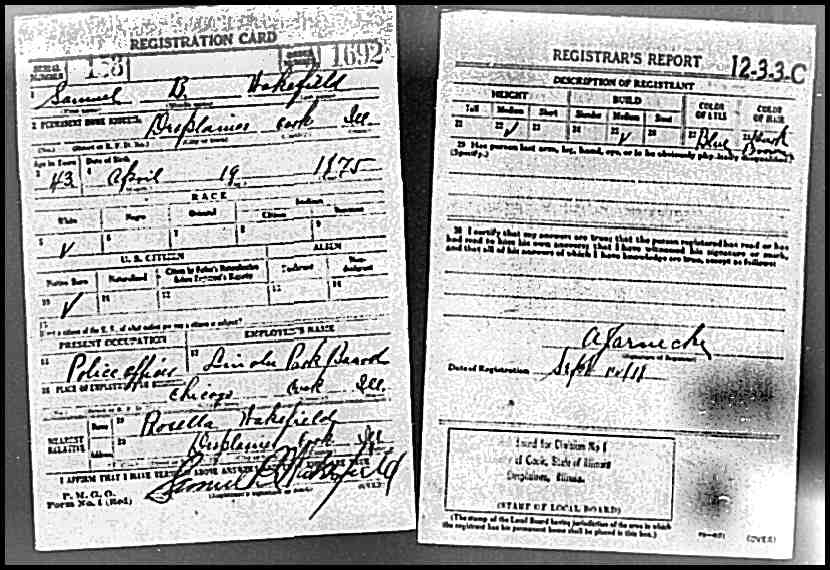 REGISTRATION CARD
SERIAL NUMBER 153 ORDER NUMBER 1692
1 Samuel B Wakefield
2 PERMANENT HOME ADDRESS: Desplaines Cook Ill
(No.) (Street or R. F. D. No.) (City or town)
Age in Years Date of Birth
3 43 4 April 19 1875
RACE
White Negro Oriental Indian
Citizen Noncitizen
5 ✓ 6 7 8 9
U. S. CITIZEN ALIEN
Native Born Naturalized Citizen by Father's Naturalization Before Registrant's Majority Declarant Non-declarant
10 ✓ 11 12 13 14
15 If not a citizen of the U. S., of what nation are you a citizen or subject?
PRESENT OCCUPATION EMPLOYER'S NAME
16 Police officer Lincoln Park Board
18 PLACE OF EMPLOYMENT OR BUSINESS:
Chicago Cook Ill.
NEAREST RELATIVE Name 19 Rosella Wakefield
Address 20 Desplaines Cook Ill
I AFFIRM THAT I HAVE VERIFIED ABOVE ANSWERS
P. M. G. O.
Form No. 1 (Red) Samuel B Wakefield
(Registrant's signature or mark) (OVER)
REGISTRAR'S REPORT 12-3-3-C
DESCRIPTION OF REGISTRANT
HEIGHT BUILD COLOR OF EYES COLOR OF HAIR
Tall Medium Short Slender Medium Stout
21 22 ✓ 23 24 25 ✓ 26 27 Blue Brown
29 Has person lost arm, leg, hand, eye, or is he obviously physically disqualified?
(Specify.)
30 I certify that my answers are true; that the person registered has read or has
had read to him his own answers; that I have witnessed his signature or mark,
and that all of his answers of which I have knowledge are true, except as follows:
(Signature of Registrar)
Date of Registration Sept
Board for Division No 1
of Cook, State of Illinois
Desplaines, Illinois.
(STAMP OF LOCAL BOARD)
(The stamp of the Local Board having jurisdiction of the area in which
the registrant has his permanent home shall be placed in this box.)
(OVER)